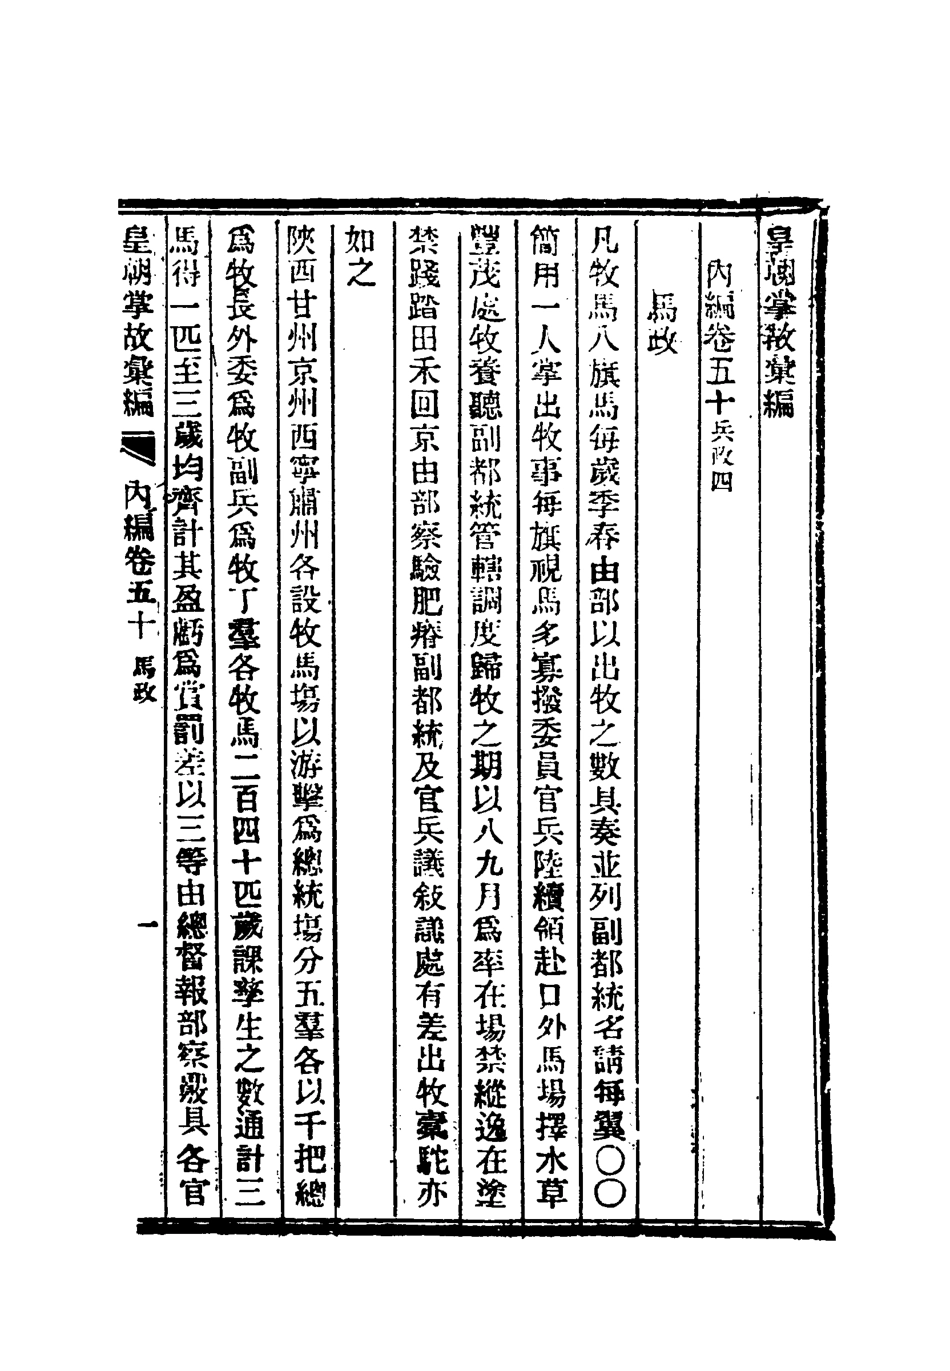 皇朝掌故彙編
內編卷五十兵政四
馬政
凡牧馬八旗馬每歲季春由部以出牧之數具奏並列副都統名請每翼〇〇
簡用一人掌出牧事每旗視馬多寡撥委員官兵陸續領赴口外馬場擇水草
豐茂處牧養聽副都統管轄調度歸牧之期以八九月爲率在場禁縱逸在塗
禁踐踏田禾回京由部察驗肥瘠副都統及官兵議敘議處有差出牧橐駝亦
如之
陝西甘州京州西寧肅州各設牧馬塲以游擊爲總統塲分五羣各以千把總
爲牧長外委爲牧副兵爲牧丁羣各牧馬二百四十匹歲課孳生之數通計三
馬得一匹至三歲均齊計其盈虧爲賞罰差以三等由總督報部察覈具各官
皇朝掌故彙編 內編卷五十 馬政 一